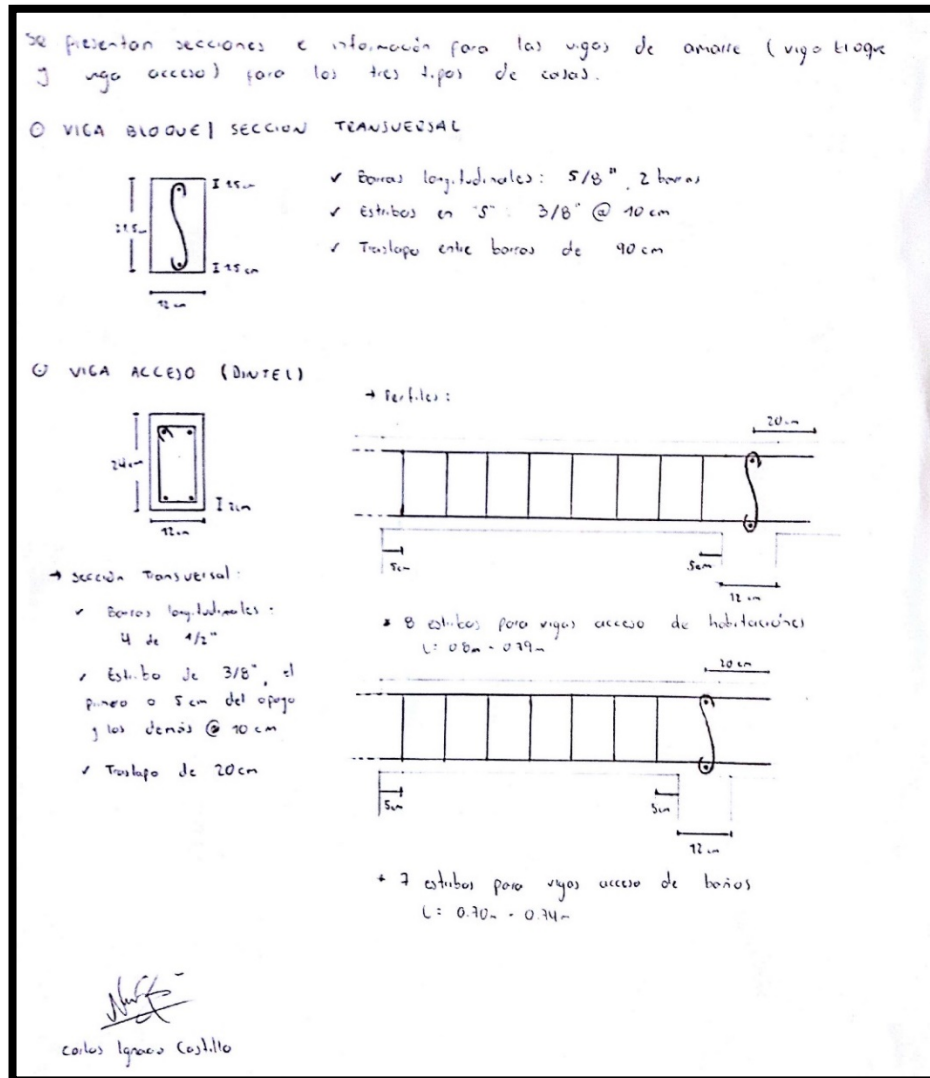 Se presentan secciones e información para las vigas de amarre (viga bloque
y viga acceso) para los tres tipos de casas.
VIGA BLOQUE | SECCION TRANSVERSAL
✓ Barras longitudinales: 5/8", 2 barras
✓ Estribos en "S": 3/8" @ 10 cm
✓ Traslapo entre barras de 90 cm
12 cm
VIGA ACCESO (DINTEL)
→ Perfiles:
20 cm
24 cm
2 cm
12 cm
5cm
5cm
12 cm
→ Sección Transversal:
✓ Barras longitudinales:
4 de 1/2"
✓ Estribo de 3/8", el
primero a 5 cm del apoyo
y los demás @ 10 cm
✓ Traslapo de 20cm
* 8 estribos para vigas acceso de habitaciones
L: 0.8m - 0.79m
20 cm
5cm
5cm
12 cm
* 7 estribos para vigas acceso de baños
L: 0.70m - 0.74m
Carlos Ignacio Castillo